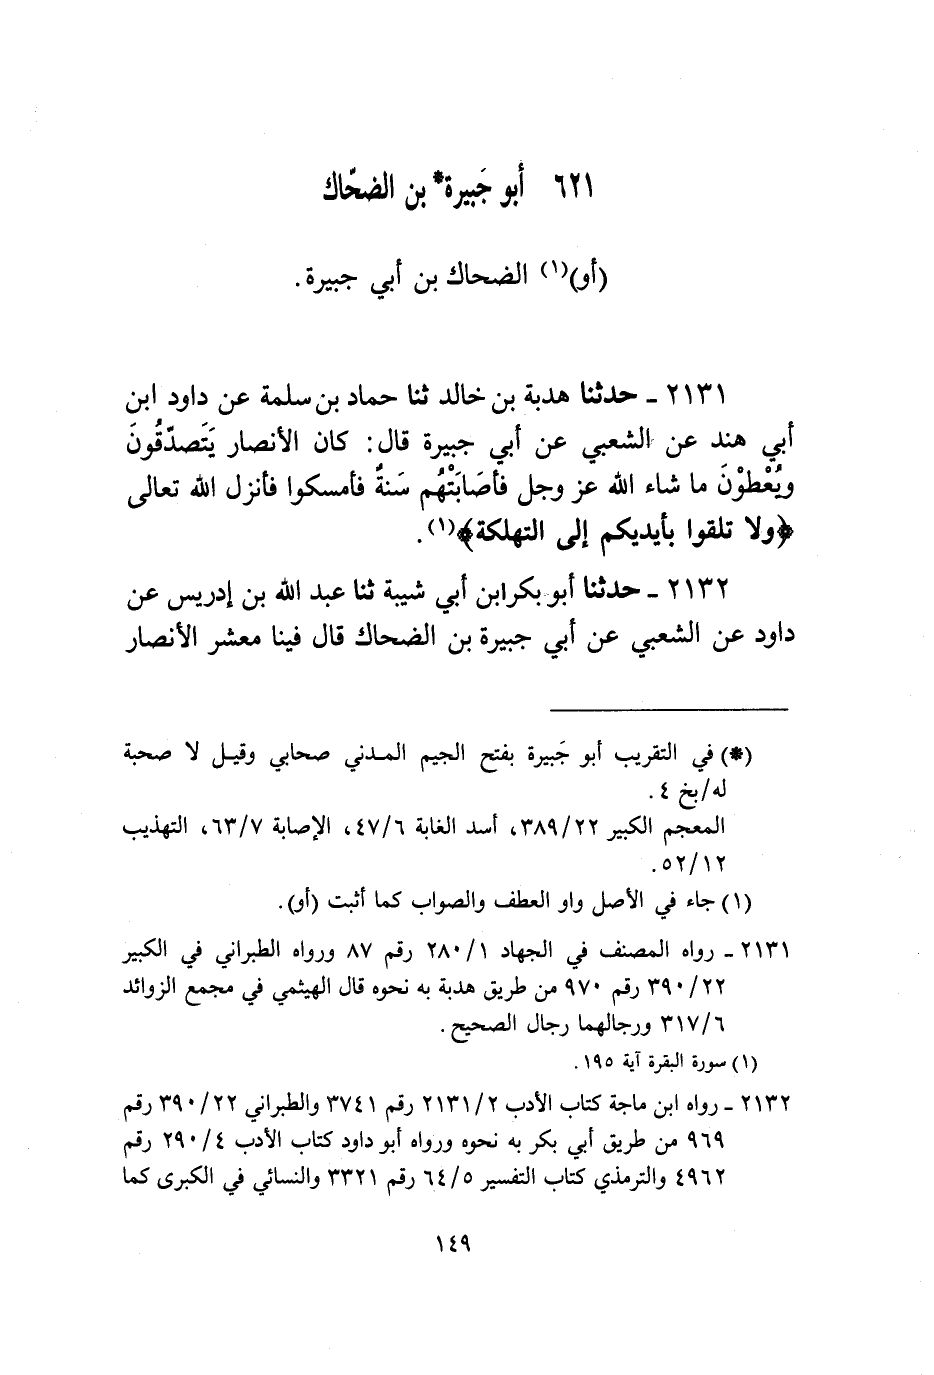 ٦٢١ أبو جَبيرة* بن الضحّاك
(أو)(١) الضحاك بن أبي جبيرة.
٢١٣١ ـ حدثنا هدبة بن خالد ثنا حماد بن سلمة عن داود ابن
أبي هند عن الشعبي عن أبي جبيرة قال: كان الأنصار يَتَصدّقُونَ
ويُعْطوْنَ ما شاء الله عز وجل فأصَابَتْهُم سَنةٌ فأمسكوا فأنزل الله تعالى
﴿ولا تلقوا بأيديكم إلى التهلكة﴾(١).
٢١٣٢ ـ حدثنا أبو بكرابن أبي شيبة ثنا عبد الله بن إدريس عن
داود عن الشعبي عن أبي جبيرة بن الضحاك قال فينا معشر الأنصار
(*) في التقريب أبو جَبيرة بفتح الجيم المدني صحابي وقيل لا صحبة
له/بخ ٤.
المعجم الكبير ٣٨٩/٢٢، أسد الغابة ٤٧/٦، الإصابة ٦٣/٧، التهذيب
٥٢/١٢.
(١) جاء في الأصل واو العطف والصواب كما أثبت (أو).
٢١٣١ ـ رواه المصنف في الجهاد ٢٨٠/١ رقم ٨٧ ورواه الطبراني في الكبير
٣٩٠/٢٢ رقم ٩٧٠ من طريق هدبة به نحوه قال الهيثمي في مجمع الزوائد
٣١٧/٦ ورجالهما رجال الصحيح.
(١) سورة البقرة آية ١٩٥.
٢١٣٢ ـ رواه ابن ماجة كتاب الأدب ٢١٣١/٢ رقم ٣٧٤١ والطبراني ٣٩٠/٢٢ رقم
٩٦٩ من طريق أبي بكر به نحوه ورواه أبو داود كتاب الأدب ٢٩٠/٤ رقم
٤٩٦٢ والترمذي كتاب التفسير ٦٤/٥ رقم ٣٣٢١ والنسائي في الكبرى كما
١٤٩